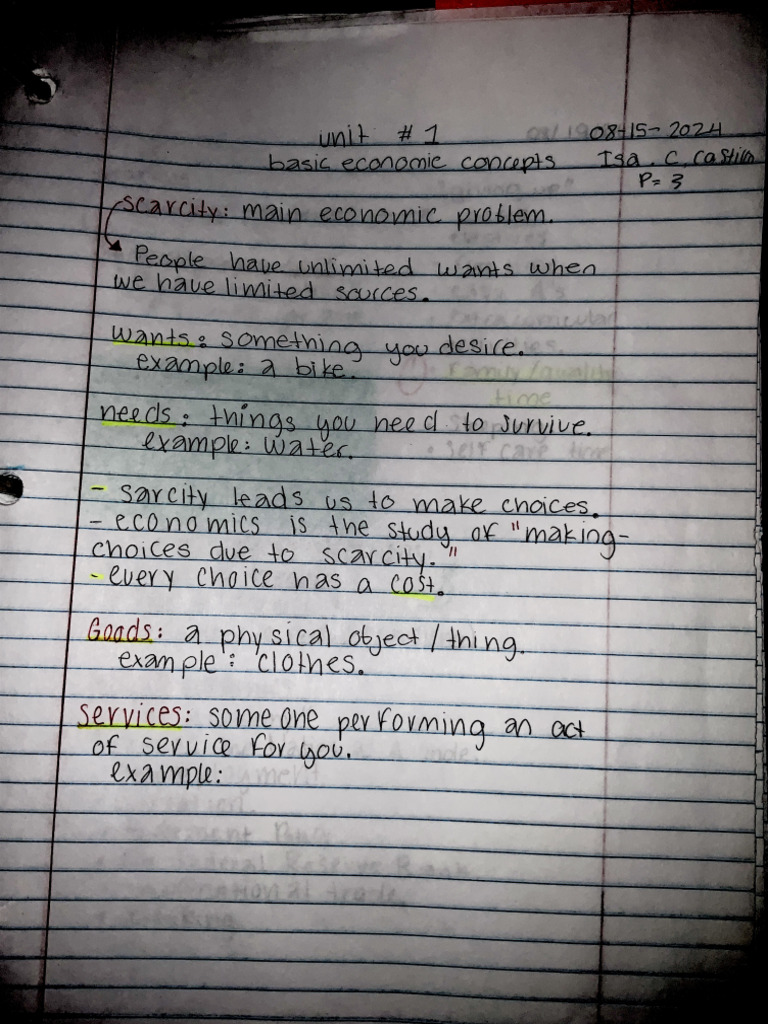 unit # 1 08-15-2024
basic economic concepts Isa. C. Castillo
P= 3
scarcity: main economic problem.
People have unlimited wants when
we have limited sources.
wants: something you desire.
example: a bike.
needs: things you need to survive.
example: water.
- sarcity leads us to make choices.
- economics is the study of "making-
choices due to scarcity."
- every choice has a cost.
Goods: a physical object/thing.
example: clothes.
services: someone performing an act
of service for you.
example:
Family/quality
time
self care time